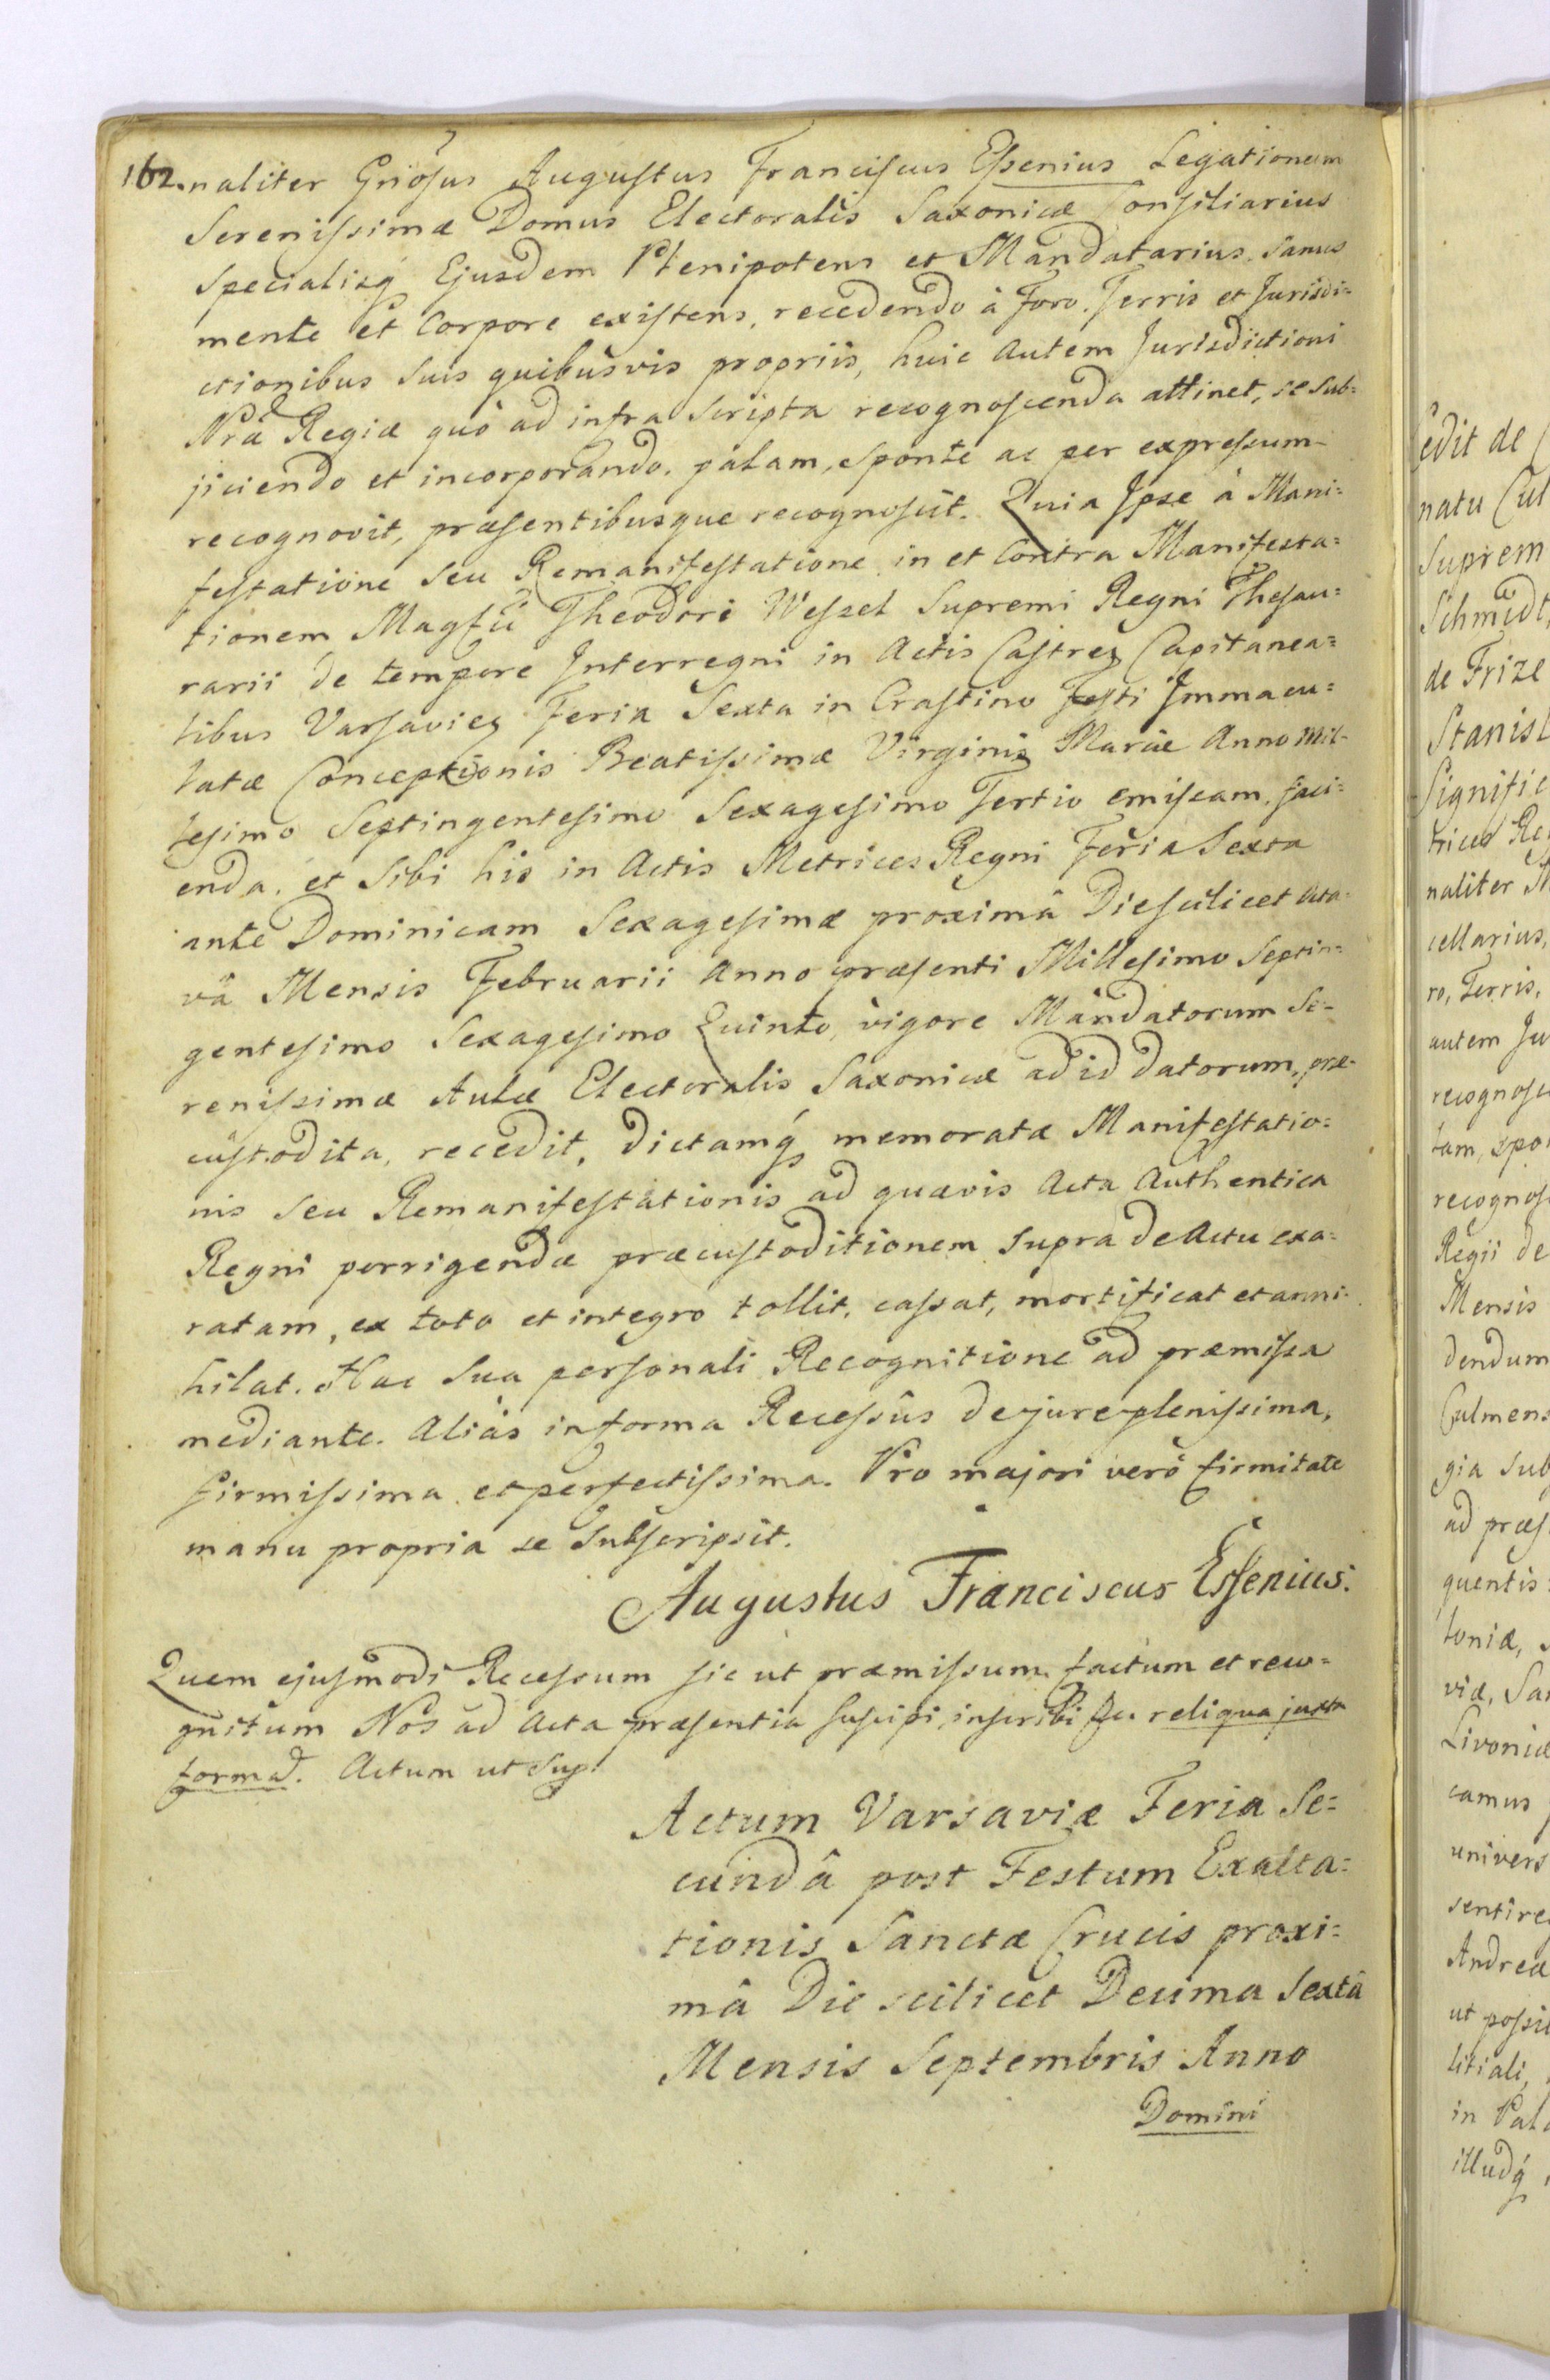 162. naliter Gnosus Augustus Franciscus Essenius Legationum
Serenissimæ Domus Electoralis Saxonicæ Consiliarius
Specialisq Ejusdem Plenipotens et Mandatarius. Sanus
mente et Corpore existens, recedendo à Foro, Terris et Jurisdi=
ctionibus Suis quibusvis propriis, huic autem Jurisdictioni
Nræ Regiæ quò ad infra Scripta recognoscenda attinet, se sub=
jiciendo et incorporando. palam, sponte ac per expressum
recognovit, præsentibusque recognoscit. Quia Ipse à Mani=
festatione seu Remanifestatione in et Contra Manifesta=
tionem Magfci Theodori Wessel Supremi Regni Thesau=
rarii de tempore Interregni in Actis Castren Capitanea=
libus Varsavien Feria Sexta in Crastino Festi Immacu=
latæ Conceptionis Beatissimæ Virginis Mariæ Anno Mil-
lesimo Septingentesimo Sexagesimo Tertio emissam, faci=
enda, et Sibi his in Actis Metrices Regni Feria Sexta
ante Dominicam Sexagesimæ proximâ Die scilicet octa=
vâ Mensis Februarii Anno præsenti Millesimo Septin=
gentesimo Sexagesimo Quinto, vigore Mandatorum Se-
renissimæ Aulæ Electoralis Saxonicæ ad id datorum, præ-
custodita, recedit, dictamq memoratæ Manifestatio=
nis seu Remanifestationis ad quævis Acta Authentica
Regni porrigendæ præcustoditionem supra de Actu exa=
ratam, ex toto et integro tollit, cassat, mortificat et anni-
hilat. Hac Sua personali Recognitione ad præmissa
mediante. Aliàs in forma Recessûs de jure plenissima,
firmissima et perfectissima. Pro majori verò firmitate
manu propria se Subscripsit.
Augustus Franciscus Essenius.
Quem ejusmodi Recessum sic ut præmissum factum et reco=
gnitum Nos ad Acta præsentia suscipi, inscribi &c. reliqua juxta
formā. Actum ut Sup
Actum Varsaviæ Feria Se=
cundâ post Festum Exalta=
tionis Sanctæ Crucis proxi=
mâ Die scilicet Decima Sextâ
Mensis Septembris Anno
Domini
edit de
natu Cul
Suprem
Schmidt,
de Frize
Stanisl
Signific
trices Re
naliter M
cellarius,
ro, Terris,
autem Ju
recognosc
lam, spo
recognos
Regii de
Mensis
dendum
Culmens
gia sub
ad præs
quentis
loniæ,
viæ, Sa
Livoniæ
camus
univers
sentire
Andreæ
ut possi
litiali,
in Pala
illudq